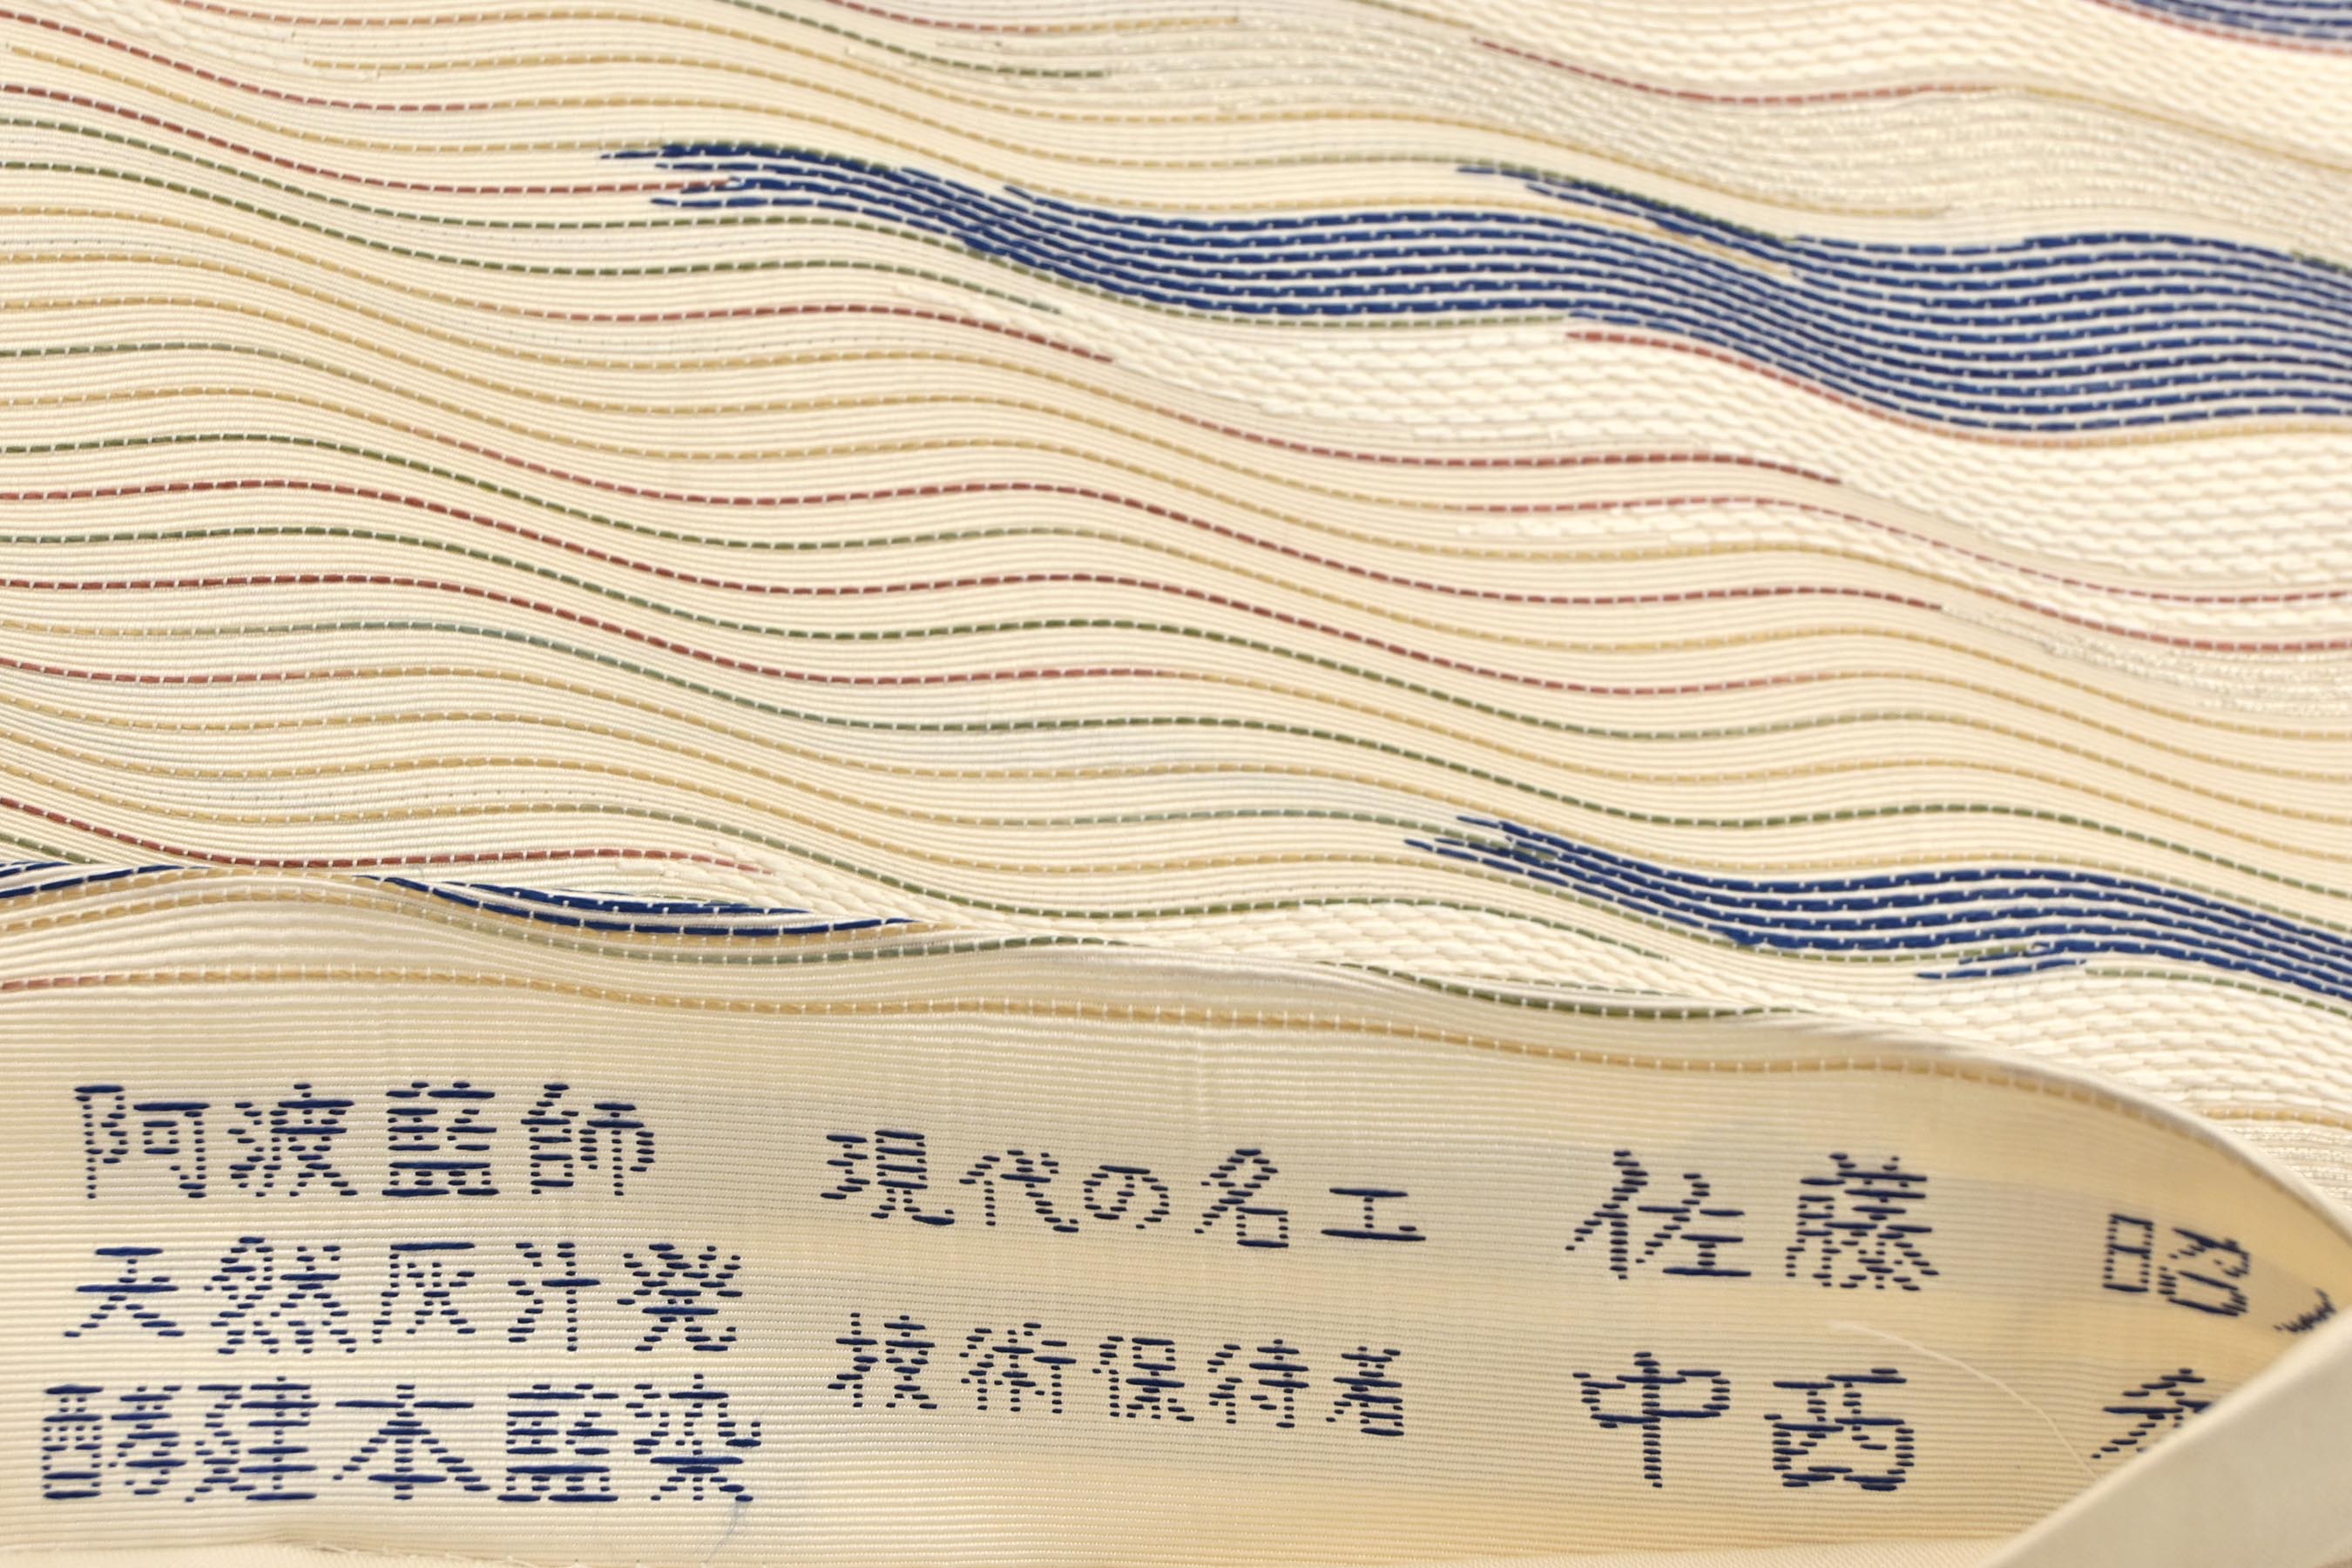 阿波藍師 現代の名工 佐藤昭
天然灰汁発
酵建本藍染 技術保持者 中西